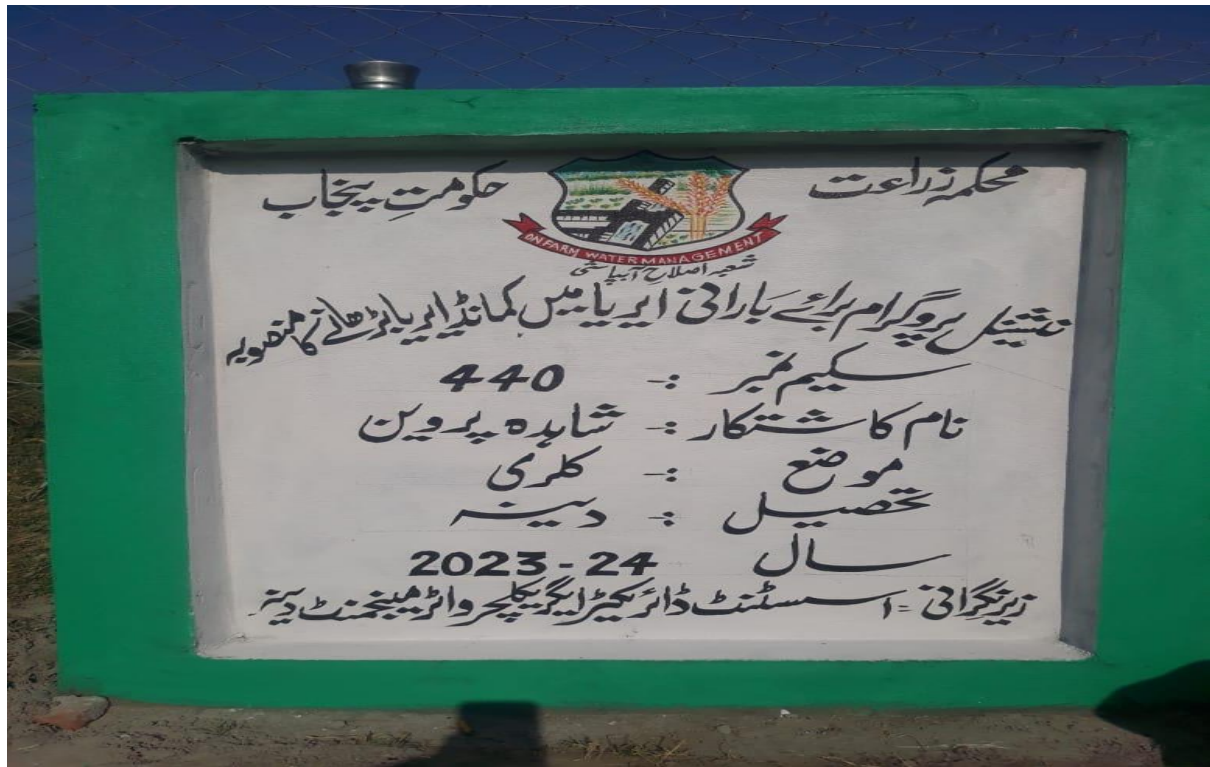 محکمہ زراعت حکومتِ پنجاب
ON FARM WATER MANAGEMENT
شعبہ اصلاح آبپاشی
نیشنل پروگرام برائے بارانی ایریا میں کمانڈ ایریا بڑھانے کا منصوبہ
سکیم نمبر :- 440
نام کاشتکار :- شاہدہ پروین
موضع :- کلری
تحصیل :- دینہ
سال 2023-24
زیرنگرانی = اسسٹنٹ ڈائریکٹر ایگریکلچر واٹر مینجمنٹ دینہ